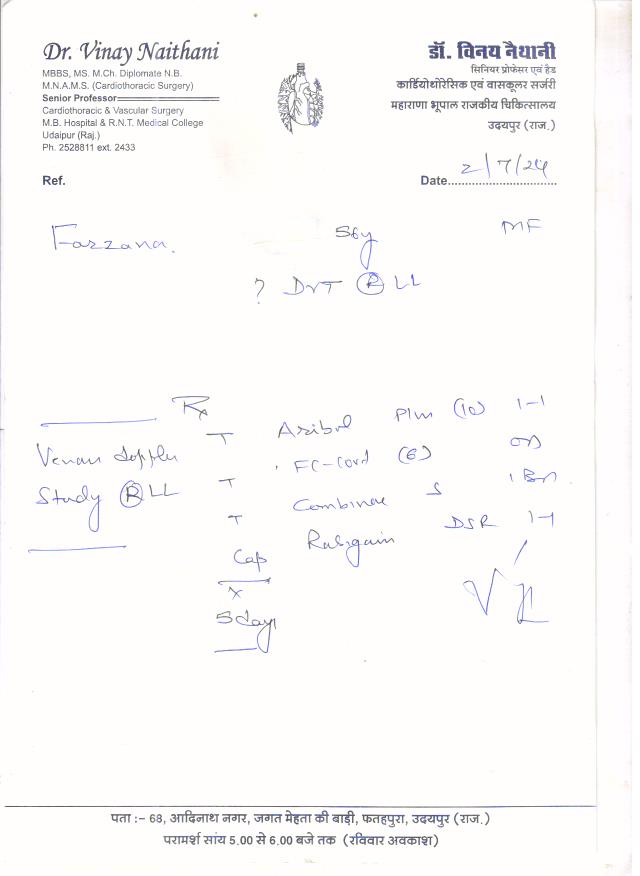 Dr. Vinay Naithani
MBBS, MS. M.Ch. Diplomate N.B.
M.N.A.M.S. (Cardiothoracic Surgery)
Senior Professor
Cardiothoracic & Vascular Surgery
M.B. Hospital & R.N.T. Medical College
Udaipur (Raj.)
Ph. 2528811 ext. 2433
डॉ. विनय नैथानी
सिनियर प्रोफेसर एवं हैड
कार्डियोथोरेसिक एवं वासकूलर सर्जरी
महाराणा भूपाल राजकीय चिकित्सालय
उदयपुर (राज.)
Ref.
Date 2/7/24
Farzana. 56y
? DVT R LL
Rx
Venous Doppler
Study R LL
T (10) 1-1
T (6) OD
T Combinae
Cap DSR 1-1
x
5 days
पता :– 68, आदिनाथ नगर, जगत मेहता की बाड़ी, फतहपुरा, उदयपुर (राज.)
परामर्श सांय 5.00 से 6.00 बजे तक (रविवार अवकाश)